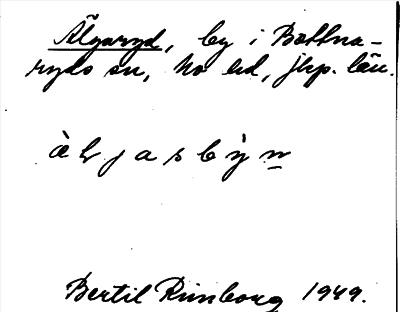 Älgaryd, by i Bottna-
ryds sn, Mo hd, jkp. län.
Bertil Rimborg 1949.